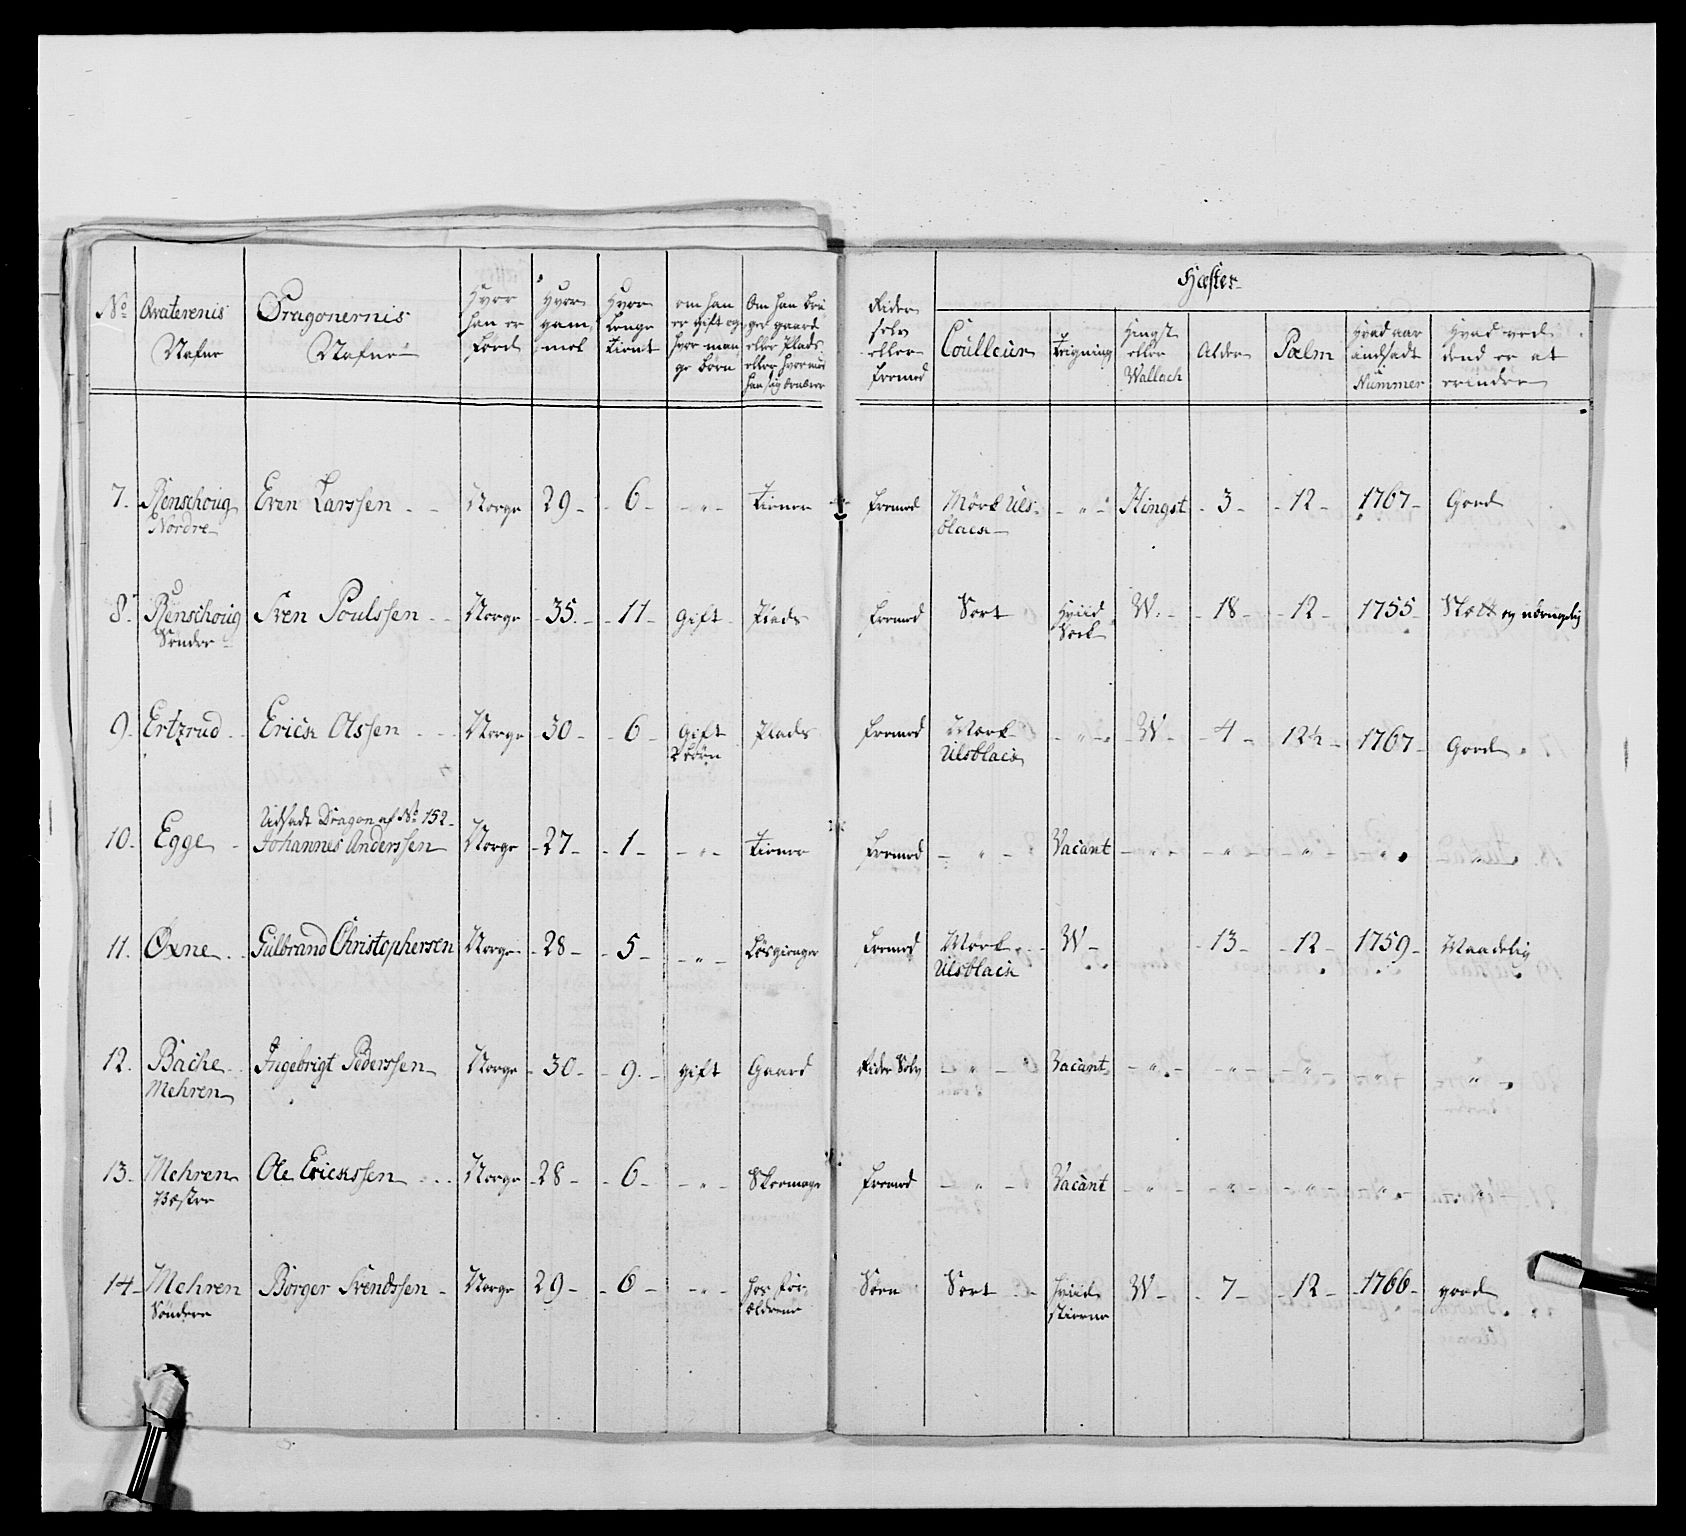 No Qvaterenis Nafne Dragonernis Nafne Hvor han er Föed Hvor gam̄mel Hvor Lenge Tient om han er gift og hvor mange börn Om han bruger gaard eller Plads eller hvormed han sig ernærer Rider selv eller fremed
Hæster
Coulleur Teigning Hingst eller Wallach Alder Palm Hvad aar andsadt Nummer Hvad ved dend er at erindre
7. Renschoug Nordre Even Larssen Norge 29 6 " Tiener fremed Mörk Ulsblach " Hingst 3 12 1767 Goed
8. Renschoug Sönder Sven Poulssen Norge 35 11 Gift Plads fremed Sort Hviid Sock W. 18 12 1755 Slætt og ubrugelig
9. Ertzrud Erich Olssen Norge 30 6 Gift 2 börn Plads fremed Mörk Ulsblach " W 4 12½ 1767 Goed
10. Egge Udsadt Dragon af No 152 Johannes Anderssen Norge 27 1 " Tiener fremed " Vacant " " " " "
11. Öxne Gulbrand Christophersen Norge 28 5 " Lösgienger fremed Mörk Ulsblach W 13 12 1759 Maadelig
12. Bache Mehren Ingebrigt Pederssen Norge 30 9 gift Gaard Rider Selv " Vacant " " " " "
13. Mehren Væstre Ole Ericssen Norge 28 6 " Skomager fremed " Vacant " " " " "
14 Mehren Söndere Börger Svendssen Norge 29 6 " hos forældrene Sort Hviid stierne W 7 12 1766 goed